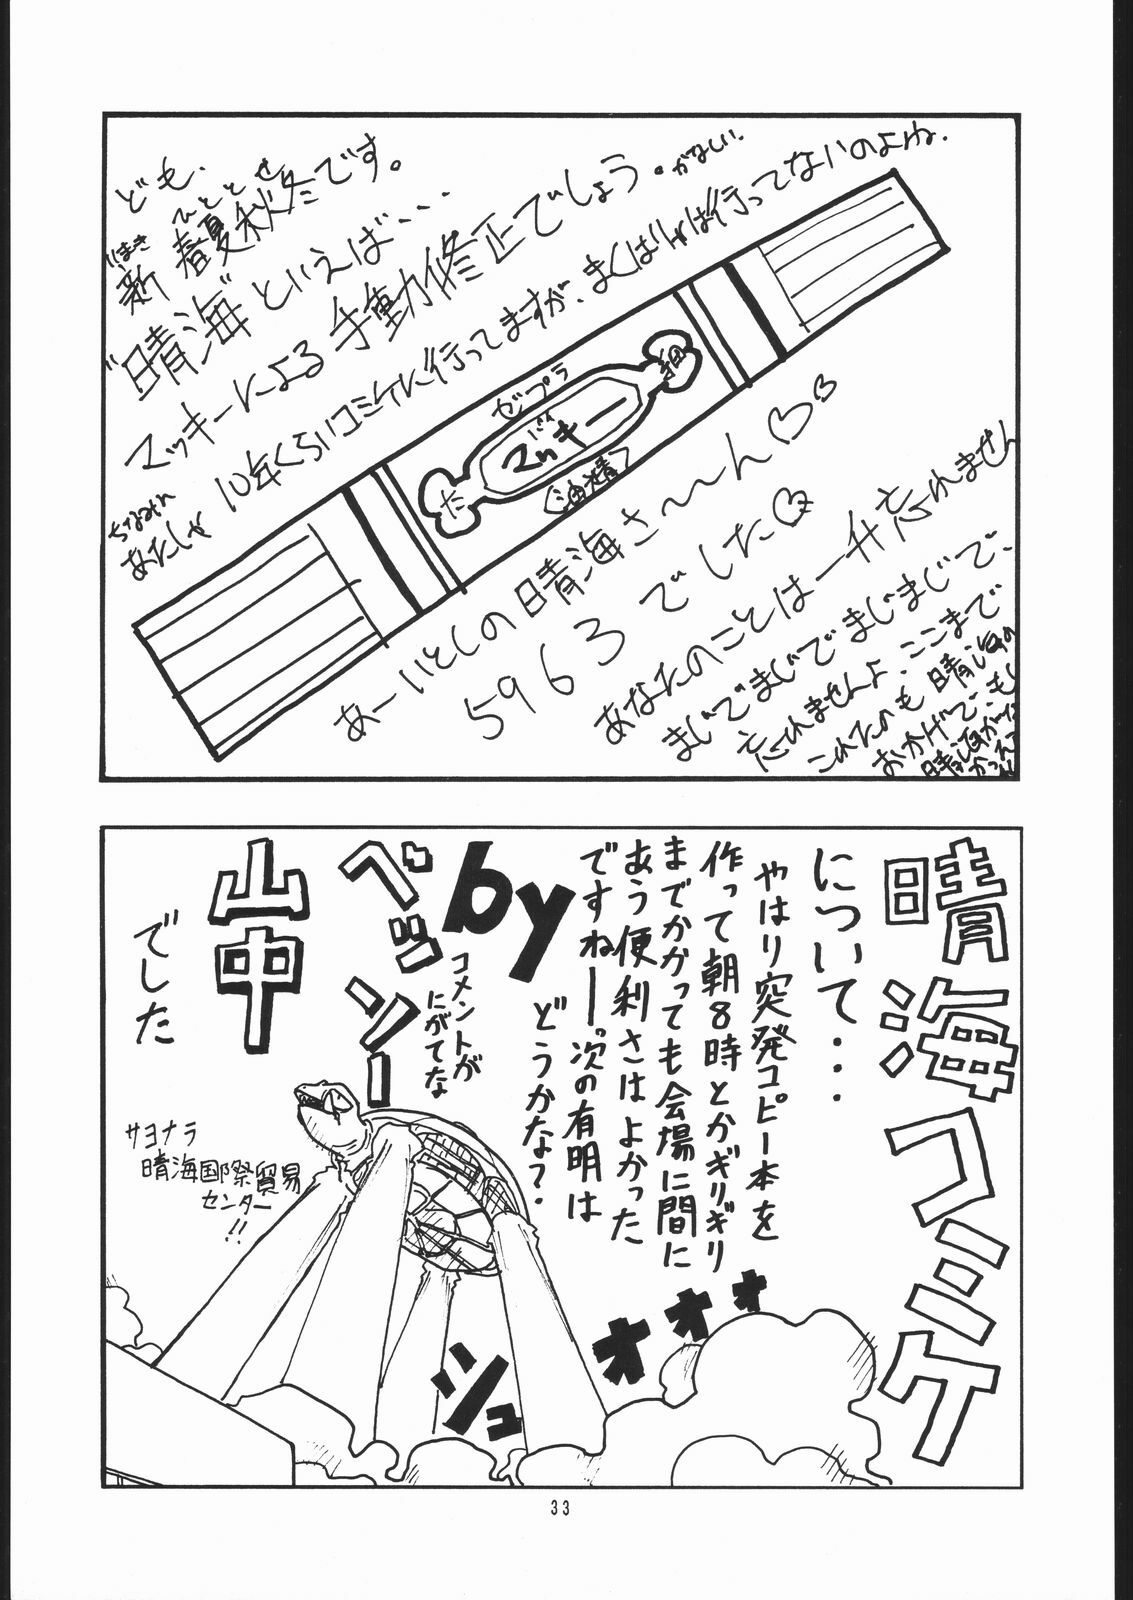 ども。
新 春夏秋冬です。
にいまき ひととせ
"晴海"といえば、、、
マッキーによる手動修正でしょう。かなしい。
ちなみに
あたしゃ 10年くらいコミケに行ってますが、まくはりゃは行ってないのよね。
ゼブラ
マッキー
細
た
(油精)
あーいとしの晴海さ〜〜ん♡♡
5963でした♡
あなたのことは一升忘れません
まじでまじでまじまじで、
忘れませんよ、ここまで
これたのも晴海の
おかげで、もし
晴海がな
かったら
晴海コミケ
について・・・
やはり突発コピー本を
作って朝8時とかギリギリ
までかかっても会場に間に
あう便利さはよかった
ですねーっ次の有明は
どうかな?
by
コメントが
にがてな
ペッソー
山中
でした
サヨナラ
晴海国際貿易
センター!!
オオォォ
シュ
33